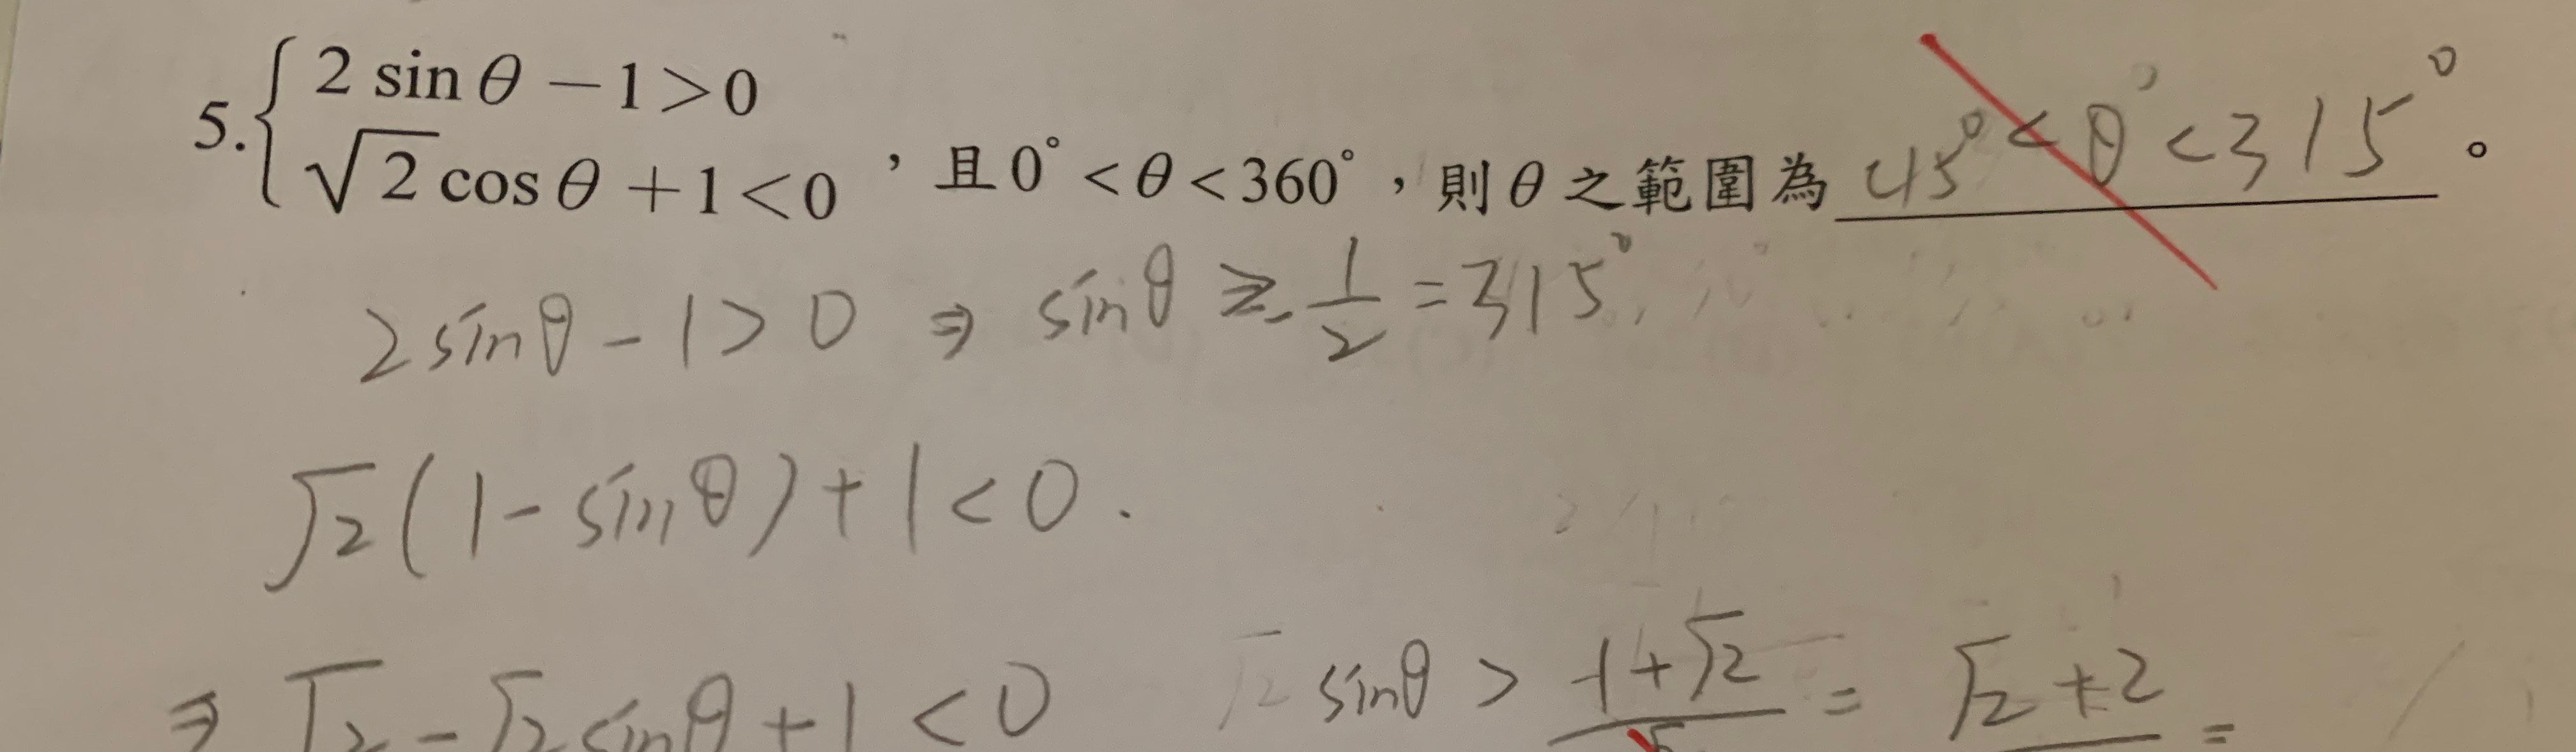 5. { 2 sin θ − 1 > 0
√2 cos θ + 1 < 0 ，且 0° < θ < 360°，則 θ 之範圍為 45° < θ° < 315° 。
2 sin θ − 1 > 0 ⇒ sin θ ≥ 1/2 = 315°
√2 (1 − sin θ) + 1 < 0 .
⇒ √2 − √2 sin θ + 1 < 0 sin θ > 1+√2 / √2 = √2 + 2 =